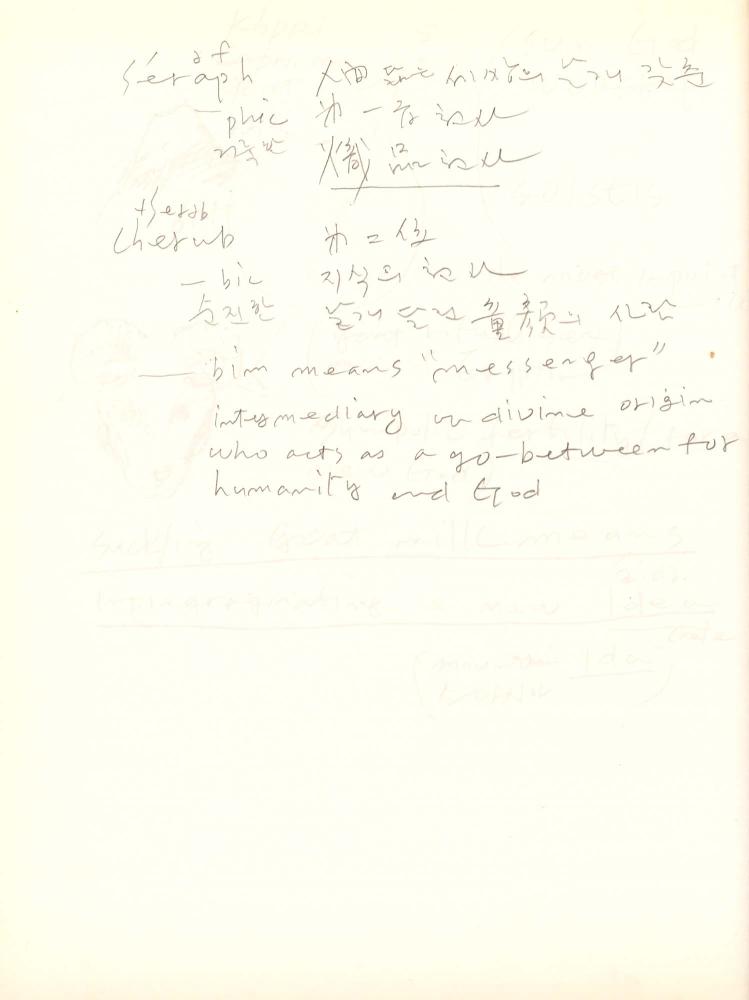 af
séraph 人面 또는 세쌍의 날개 갖춘
—phic 第一 천사
거룩한 熾品천사
tserəb
cherub 第二位
—bic 지식의 천사
순진한 날개 달린 童顔의 사람
—bim means "messenger"
intermediary divine origin
who acts as a go-between for
humanity and God